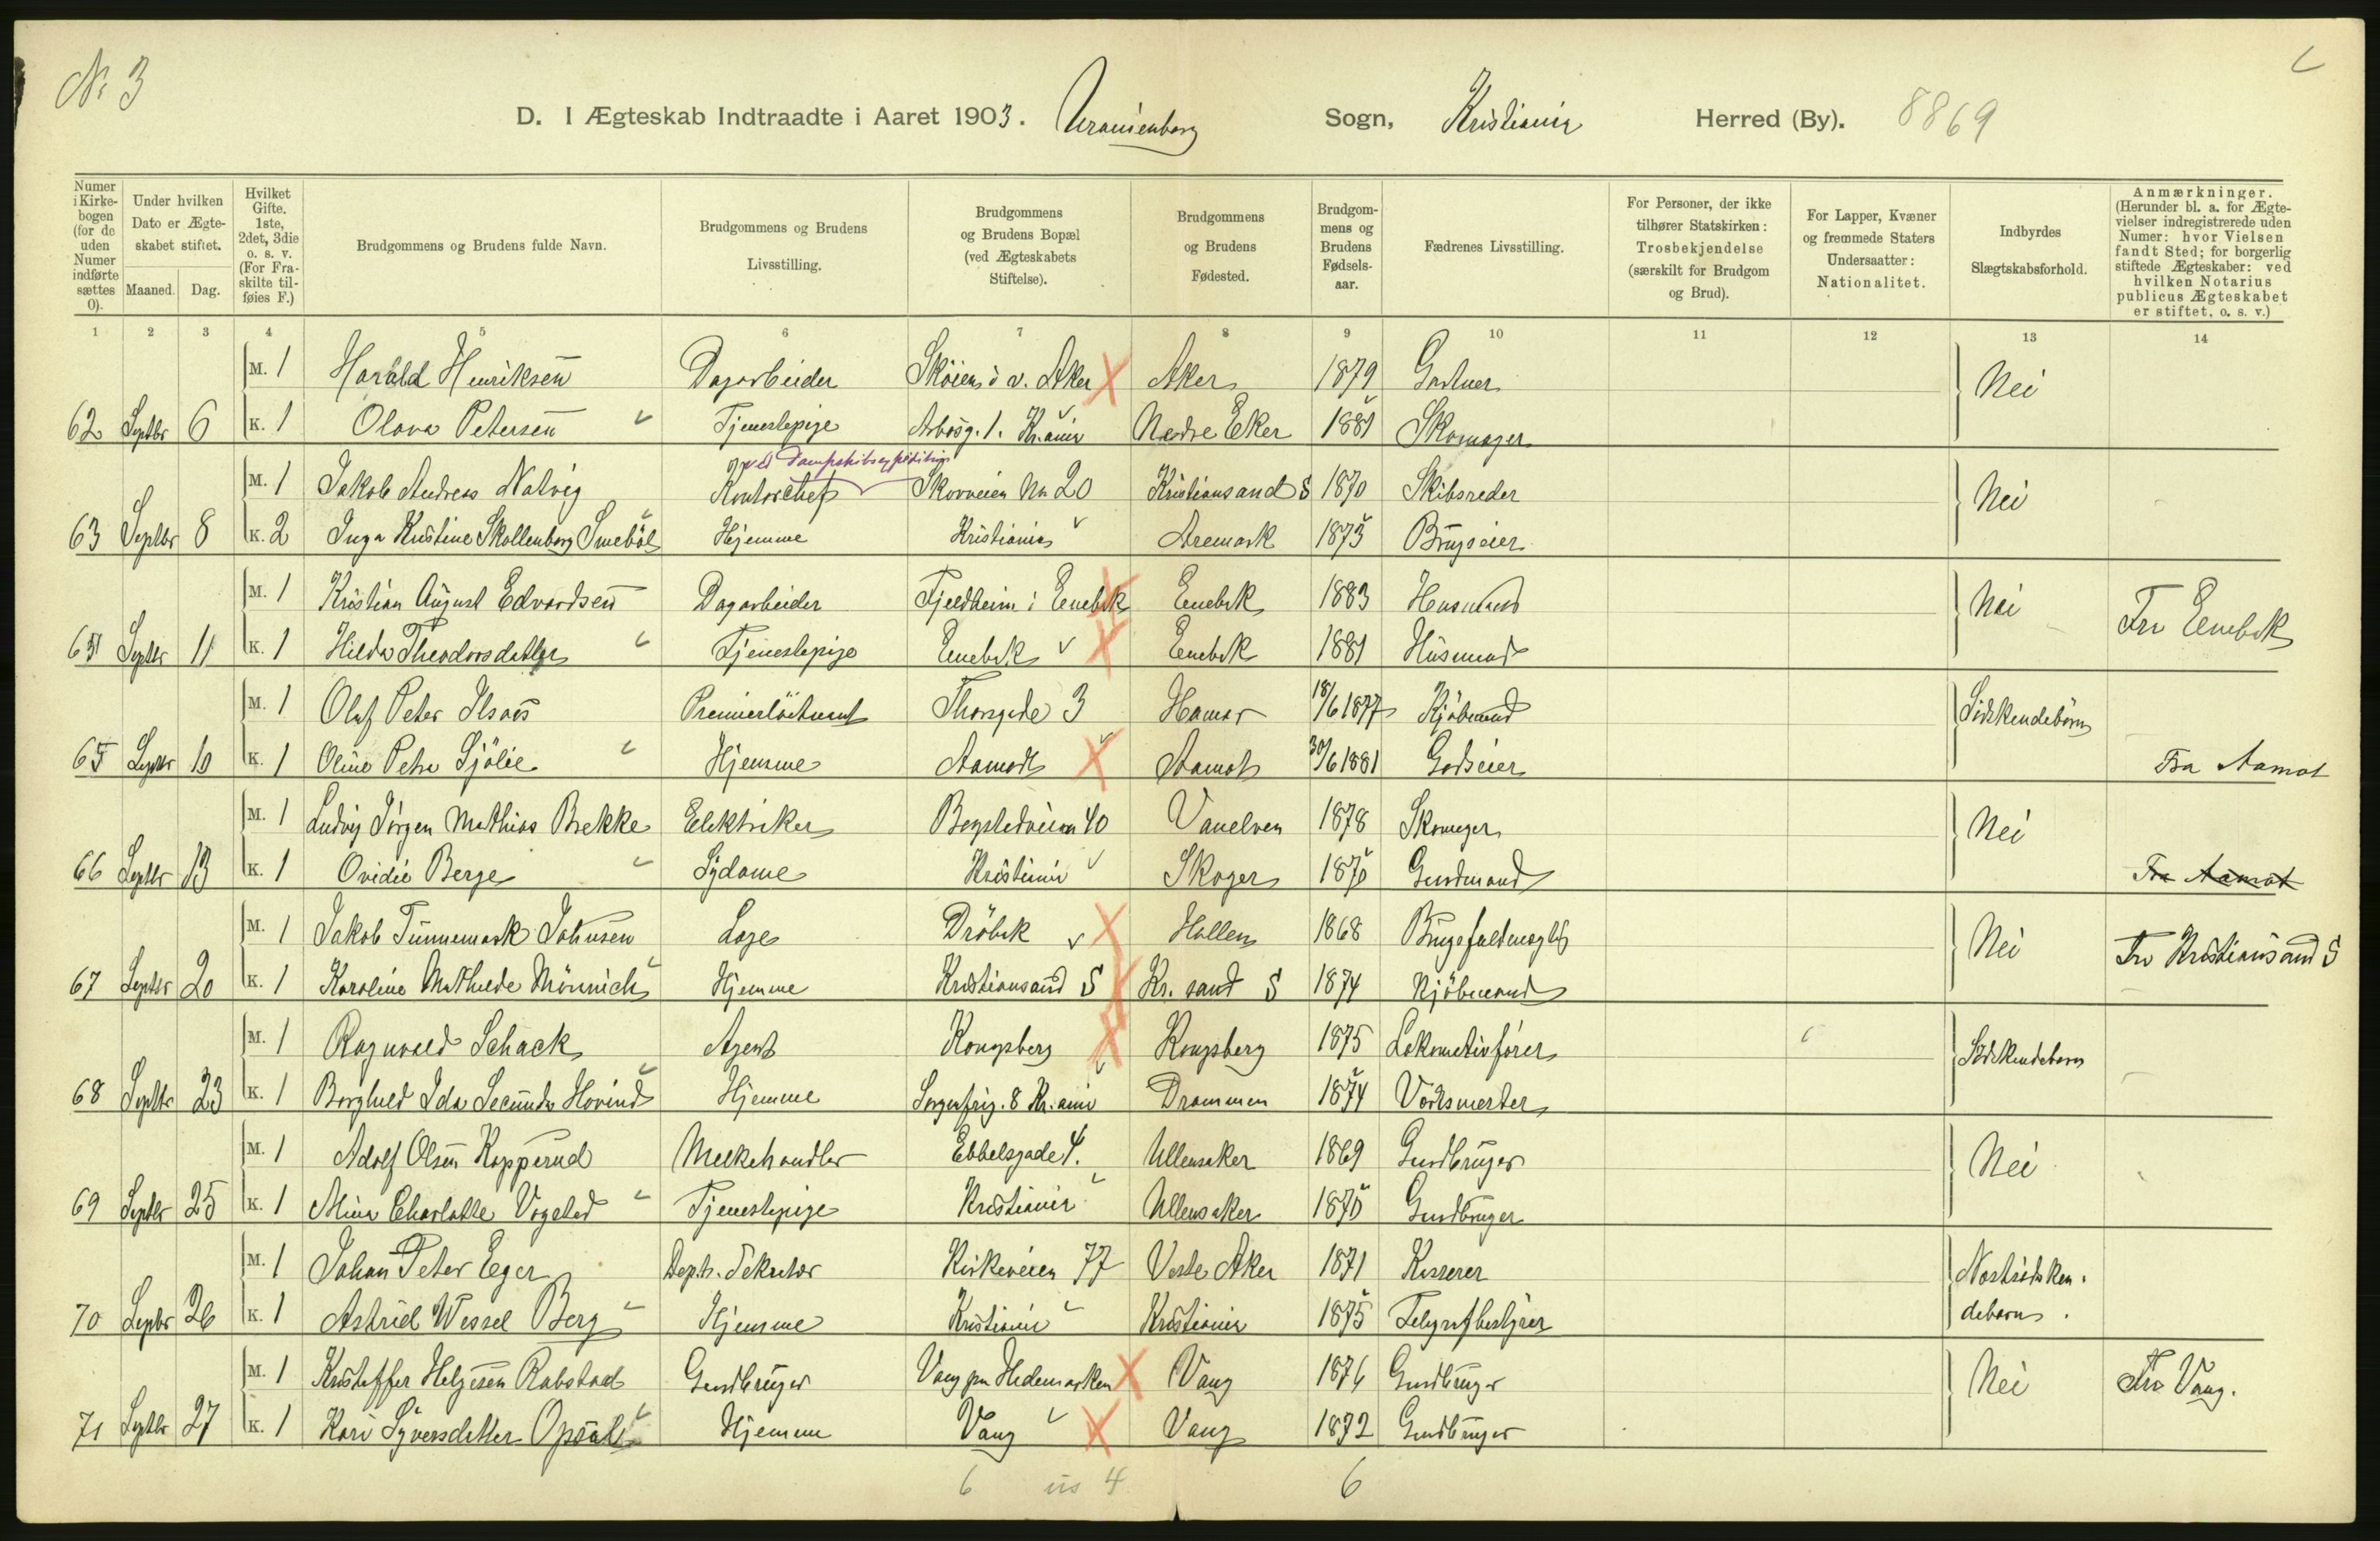 No 3
D. I Ægteskab Indtraadte i Aaret 1903. Uranienborg Sogn, Kristiania Herred (By). 8869
Numer i Kirkebogen (for de uden Numer indførte sættes 0).
Under hvilken Dato er Ægteskabet stiftet. Maaned. Dag.
Hvilket Gifte. 1ste, 2det, 3die o. s. v. (For Fraskilte tilføies F.)
Brudgommens og Brudens fulde Navn.
Brudgommens og Brudens Livsstilling.
Brudgommens og Brudens Bopæl (ved Ægteskabets Stiftelse).
Brudgommens og Brudens Fødested.
Brudgommens og Brudens Fødselsaar.
Fædrenes Livsstilling.
For Personer, der ikke tilhører Statskirken: Trosbekjendelse (særskilt for Brudgom og Brud).
For Lapper, Kvæner og fremmede Staters Undersaatter: Nationalitet.
Indbyrdes Slægtskabsforhold.
Anmærkninger. (Herunder bl. a. for Ægtevielser indregistrerede uden Numer: hvor Vielsen fandt Sted; for borgerlig stiftede Ægteskaber: ved hvilken Notarius publicus Ægteskabet er stiftet, o. s. v.)
1 2 3 4 5 6 7 8 9 10 11 12 13 14
M. 1 Harald Henriksen Dagarbeider Skøien i v. Aker Aker 1879 Gartner Nei
62 Septbr 6 K. 1 Olava Petersen Tjenestepige Arbosg. 1. Kr.ania Nedre Eker 1881 Skomager
ved Dampskibsexpedition
M. 1 Jakob Andreas Natvig Kontorchef Skovveien No 20 Kristiansand S 1870 Skibsreder Nei
63 Septbr 8 K. 2 Inga Kristine Skollenborg Smebøl Hjemme Kristiania Aremark 1873 Brugseier
M. 1 Kristian August Edvardsen Dagarbeider Fjeldheim i Enebak Enebak 1883 Husmand Nei Fra Enebak
64 Septbr 11 K. 1 Hilda Theodorsdatter Tjenestepige Enebak Enebak 1881 Husmand
M. 1 Olaf Peter Ilsaas Premierløitnant Thorsgade 3 Hamar 18/6 1877 Kjøbmand Sødskendebørn
65 Septbr 10 K. 1 Oline Petra Sjølie Hjemme Aamodt Aamot 30/6 1881 Godseier Fra Aamot
M. 1 Ludvig Jørgen Mathias Brekke Elektriker Bogstadveien 40 Vanelven 1878 Skomager Nei
66 Septbr 13 K. 1 Ovidie Berge Sydame Kristiania Skoger 1870 Gaardmand Fra Aamot
M. 1 Jakob Tünnemark Johnsen Læge Drøbak Hollen 1868 Brugsfuldmægtig Nei Fra Kristiansand S
67 Septbr 20 K. 1 Karoline Mathilde Mønnich Hjemme Kristiansand S Kr. sand S 1874 Kjøbmand
M. 1 Ragnvald Schack Agent Kongsberg Kongsberg 1875 Lokomotivfører Sødskendebarn
68 Septbr 23 K. 1 Borghild Ida Secunda Hovind Hjemme Sorgenfrig. 8 Kr.ania Drammen 1874 Værksmester
M. 1 Adolf Olsen Kopperud Melkehandler Ebbelsgade 4. Ullensaker 1869 Gaardbruger Nei
69 Septbr 25 K. 1 Mina Charlotte Vogstad Tjenestepige Kristiania Ullensaker 1875 Gaardbruger
M. 1 Johan Peter Eger Dept.s. Sekretær Kirkeveien 77 Vestre Aker 1871 Kasserer Næstsødsken-
70 Septbr 26 K. 1 Astrid Wessel Berg Hjemme Kristiania Kristiania 1875 Telegrafbestyrer debarn.
M. 1 Kristoffer Helgesen Rabstad Gaardbruger Vang paa Hedemarken Vang 1876 Gaardbruger Nei Fra Vang.
71 Septbr 27 K. 1 Kari Syversdatter Opsal Hjemme Vang Vang 1872 Gaardbruger
6 4 6